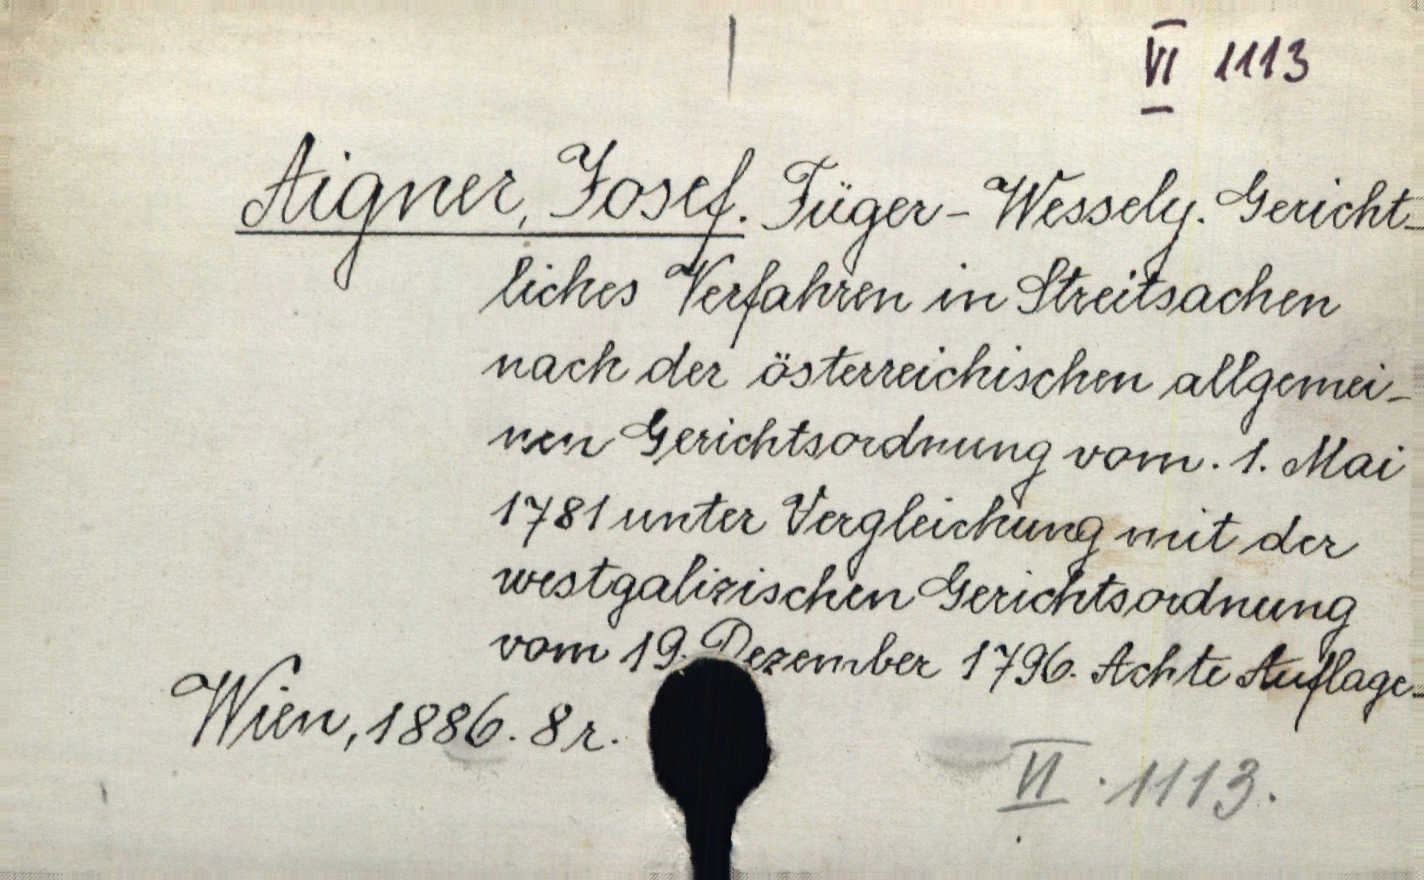 VI 1113
Aigner, Josef. Füger - Wessely. Gericht-
liches Verfahren in Streitsachen
nach der österreichischen allgemei-
nen Gerichtsordnung vom. 1. Mai
1781 unter Vergleichung mit der
westgalizischen Gerichtsordnung
vom 19. Dezember 1796. Achte Auflage.-
Wien, 1886. 8r.
VI. 1113.